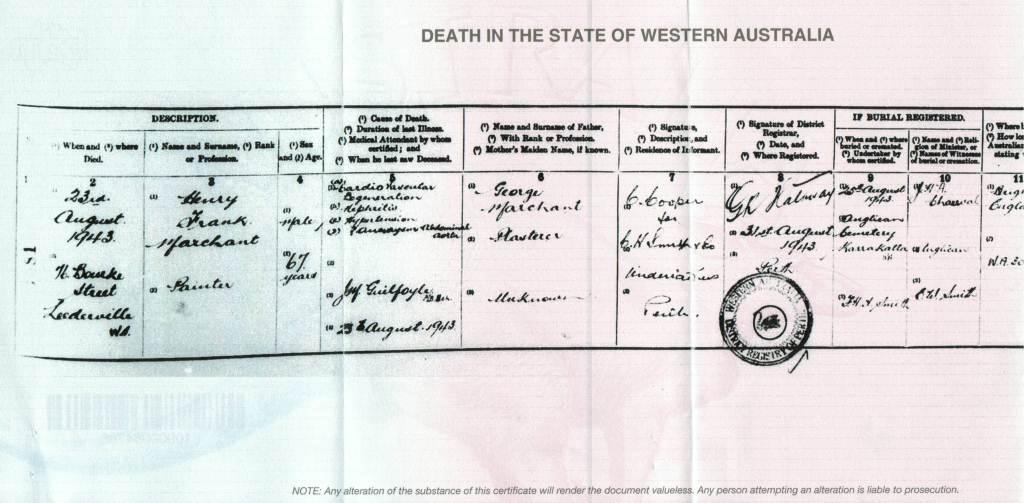 DEATH IN THE STATE OF WESTERN AUSTRALIA
DESCRIPTION.
(1) When and (2) where
Died.
(1) Name and Surname, (2) Rank
or Profession.
(1) Sex
and (2) Age.
(1) Cause of Death.
(2) Duration of last Illness.
(3) Medical Attendant by whom
certified; and
(4) When he last saw Deceased.
(1) Name and Surname of Father,
(2) With Rank or Profession.
(3) Mother's Maiden Name, if known.
(1) Signature,
(2) Description, and
(3) Residence of Informant.
(1) Signature of District
Registrar,
(2) Date, and
(3) Where Registered.
IF BURIAL REGISTERED.
(1) When and (2) where
buried or cremated.
(3) Undertaker by
whom certified.
(1) Name and (2) Reli-
gion of Minister, or
(3) Names of Witnesses
of burial or cremation.
(1) Where
(2) How lo
Australia
stating
1 2 3 4 5 6 7 8 9 10 11
23rd
August
1943.
Bourke
Street
Leederville
WA.
Henry
Frank
Marchant
Painter
Male
67
years
Cardio Vascular
Degeneration
Nephritis
Hypertension
Abdominal
aorta
Guilfoyle
23rd August 1943
George
Marchant
Plasterer
Unknown
C. Cooper
for
C. H. Smith & Co
Perth
31st August
1943
Perth
WESTERN AUSTRALIA
DISTRICT REGISTRY OF PERTH
25th August
1943
Anglican
Cemetery
Karrakatta
Smith
Anglican
Smith
Engla
W.A. 30
NOTE: Any alteration of the substance of this certificate will render the document valueless. Any person attempting an alteration is liable to prosecution.